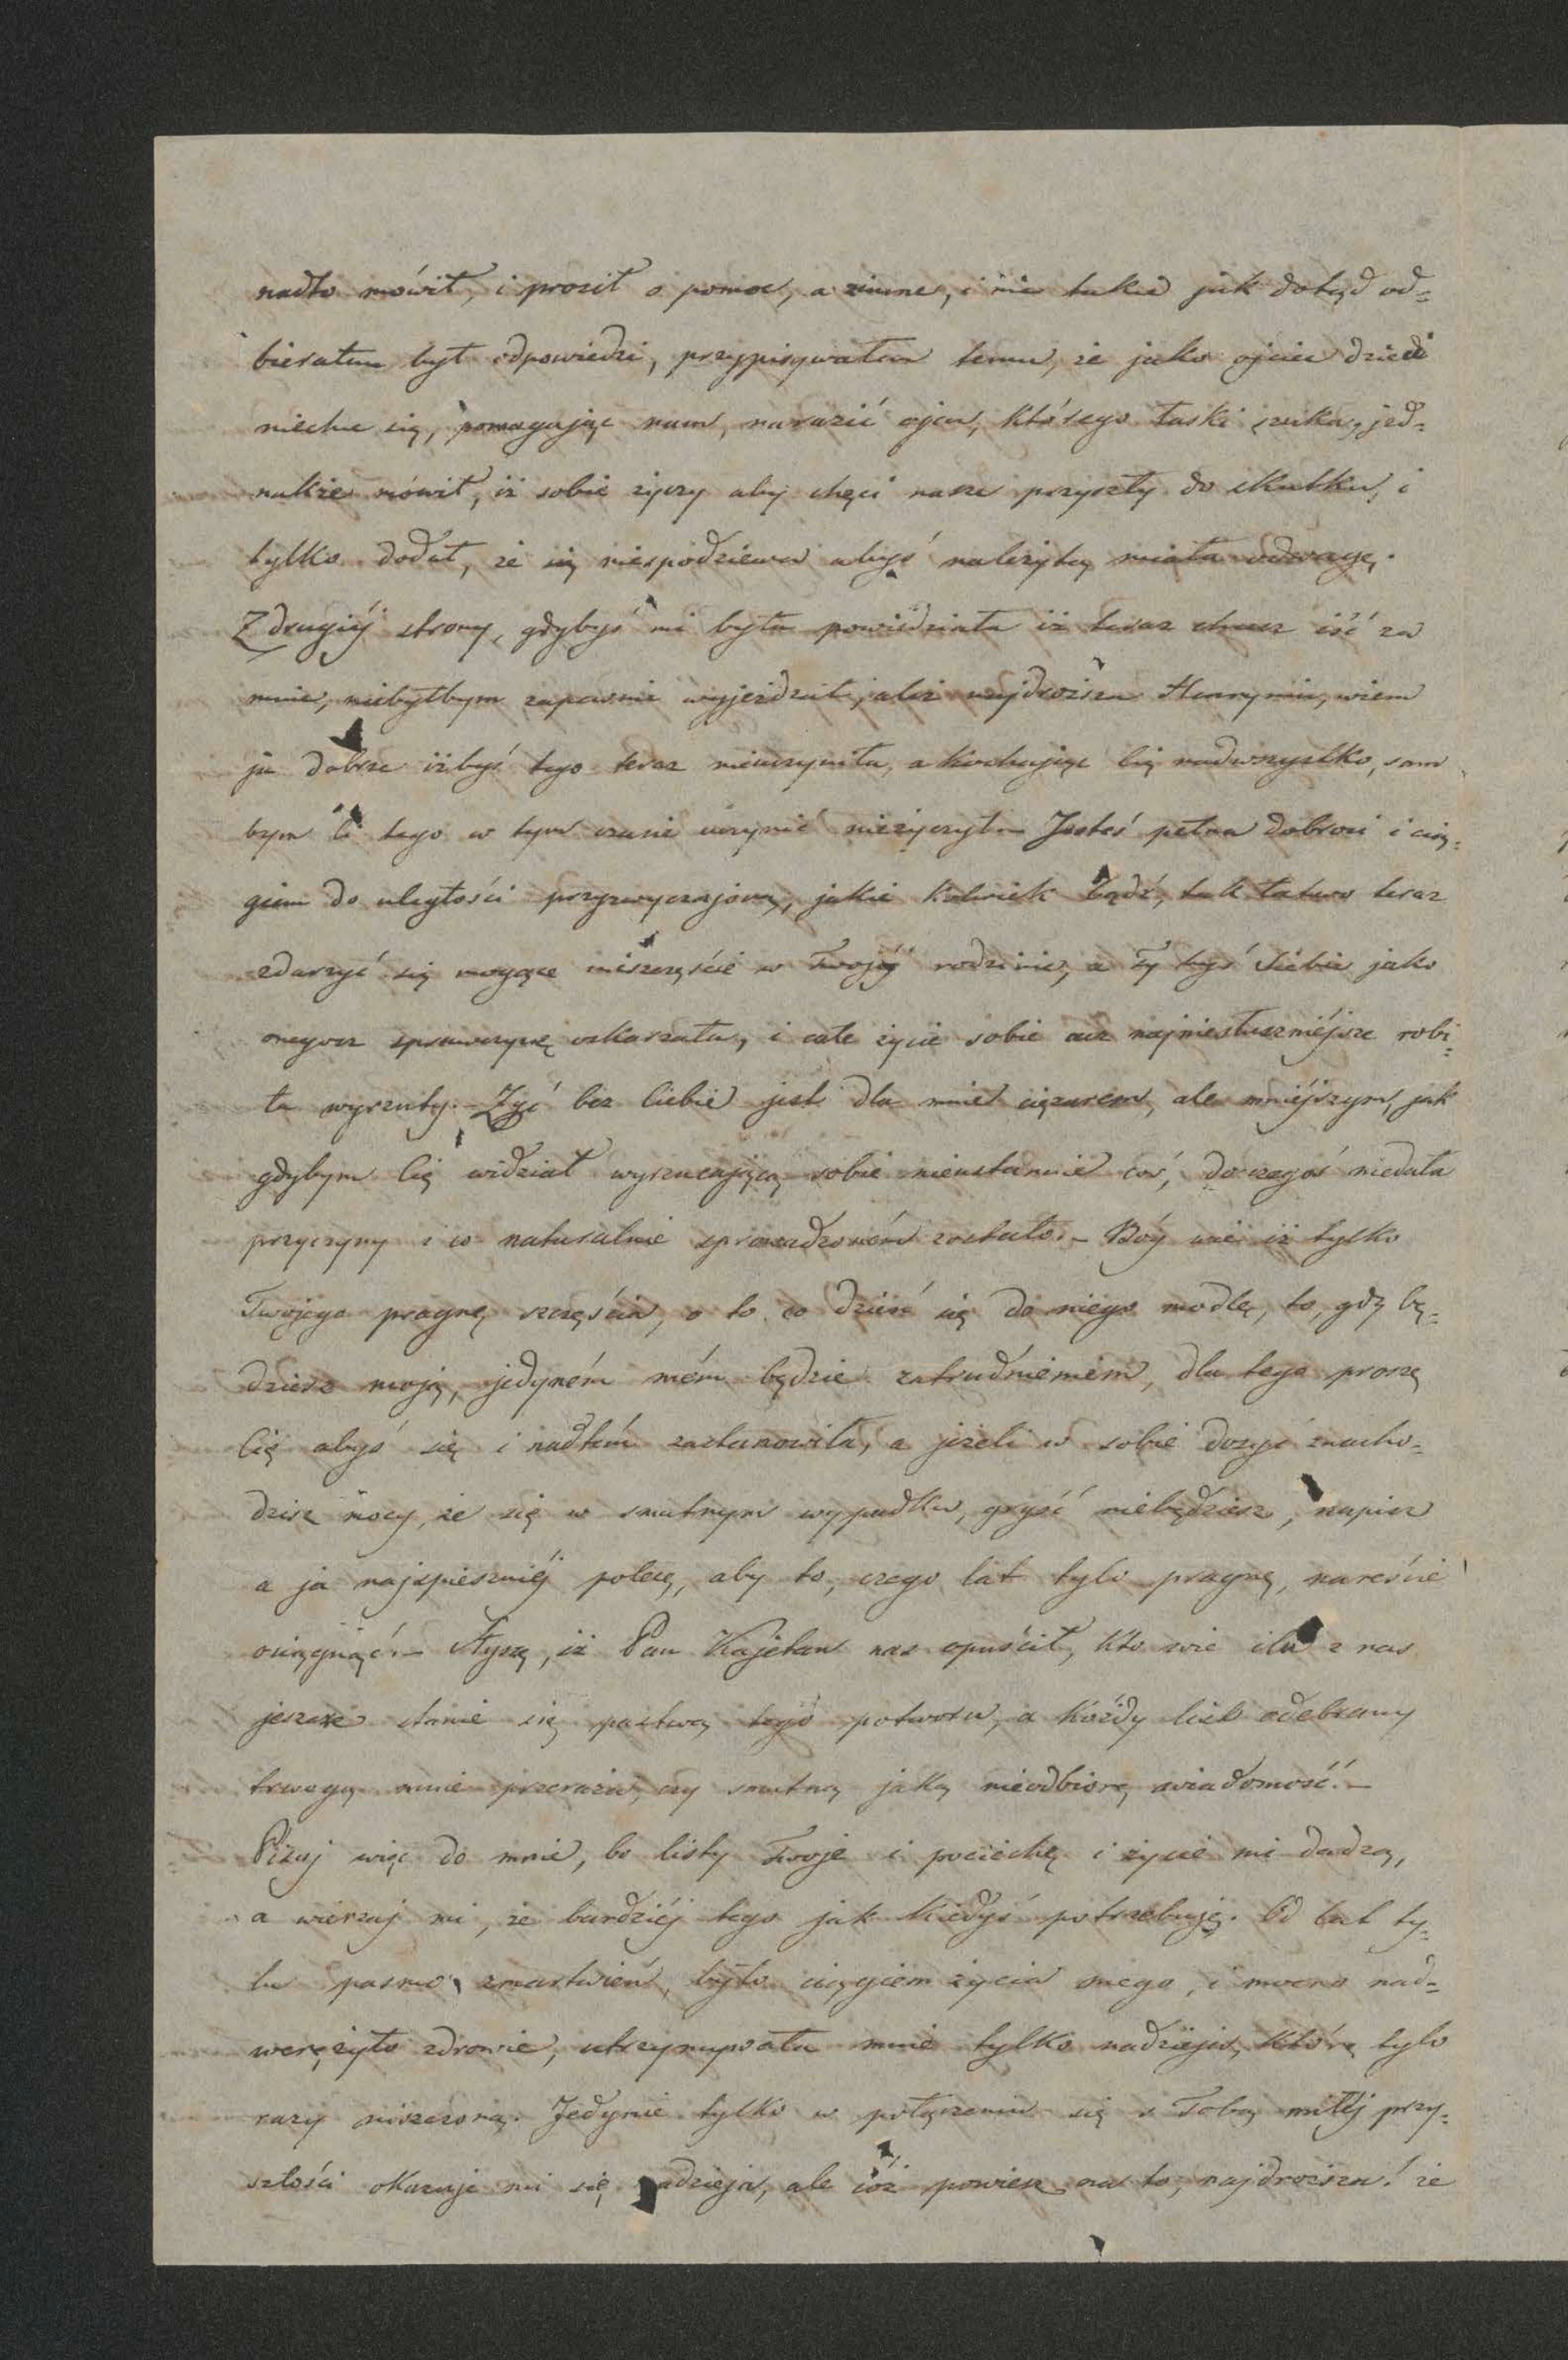 nadto mówił, i prosił o pomoc, a zimne, i nie takie jak dotąd od=
bierałem był odpowiedzi, przypisywałem temu, że jako ojciec dzieci
niechce się, pomagając nam, narazić ojcu, którego łaski szuka, jed=
nakże mówił, iż sobie życzy aby chęci nasze przyszły do skutku, i
tylko dodał, że się niespodziewa abyś należytą miała odwagę.
Z drugiéj strony, gdybyś mi była powiedziała iż teraz chcesz iść za
mnie, niebyłbym zapewnie wyjeżdżał, ależ najdroższa Henrymin, wiem
ja dobrze iżbyś tego teraz nieuczyniła, a kochając Cię nadwszystko, sam
bym Ci tego w tym czasie uczynić nieżyczył. – Jesteś pełna dobroci i cią=
giem do uległości przyzwyczajoną, jakie kolwiek bądź, tak łatwo teraz
zdarzyć się mogące nieszczęście w Twojéj rodzinie, a Ty byś Siebie jako
onegoż sprawczynię oskarżała, i całe życie sobie acz najniesłuszniéjsze robi=
ła wyrzuty. – Żyć bez Ciebie jest dla mnie ciężarem, ale mniéjszym, jak
gdybym Cię widział wyrzucającą sobie nieustannie coś, do czegoś niedała
przyczyny i co naturalnie sprowadzoném zostało. – Bóg wie iż tylko
Twojego pragnę szczęścia, o to co dzień się do niego modlę, to, gdy bę=
dziesz moją, jedyném mém będzie zatrudnieniem, dla tego proszę
Cię abyś się i nadtém zastanowiła, a jeżeli w sobie dosyć znacho=
dzisz mocy, że się w smutnym wypadku, gryźć niebędziesz, napisz
a ja najspieszniéj polecę, aby to, czego lat tylo pragnę, nareście
osięgnąć. – Słyszę, iż Pan Kajetan nas opuścił, kto wie ilu z nas
jeszcze stanie się pastwą tego potworu, a każdy list odebrany
trwogą mnie przeraża, czy smutną jaką nieodbiorę wiadomość. –
Pisuj więc do mnie, bo listy Twoje i pociechę i życie mi dadzą,
a wierzaj mi, że bardziéj tego jak kiedyś potrzebuję. Od lat ty=
lu pasmo zmartwień, było ciągiem życia mego, i mocno nad=
werężyło zdrowie, utrzymywała mnie tylko nadzieja, którą tylo
razy niszczoną. Jedynie tylko w połączeniu się z Tobą miłéj przy=
szłości okazuje mi się nadzieja, ale cóż powiesz na to, najdroższa! że